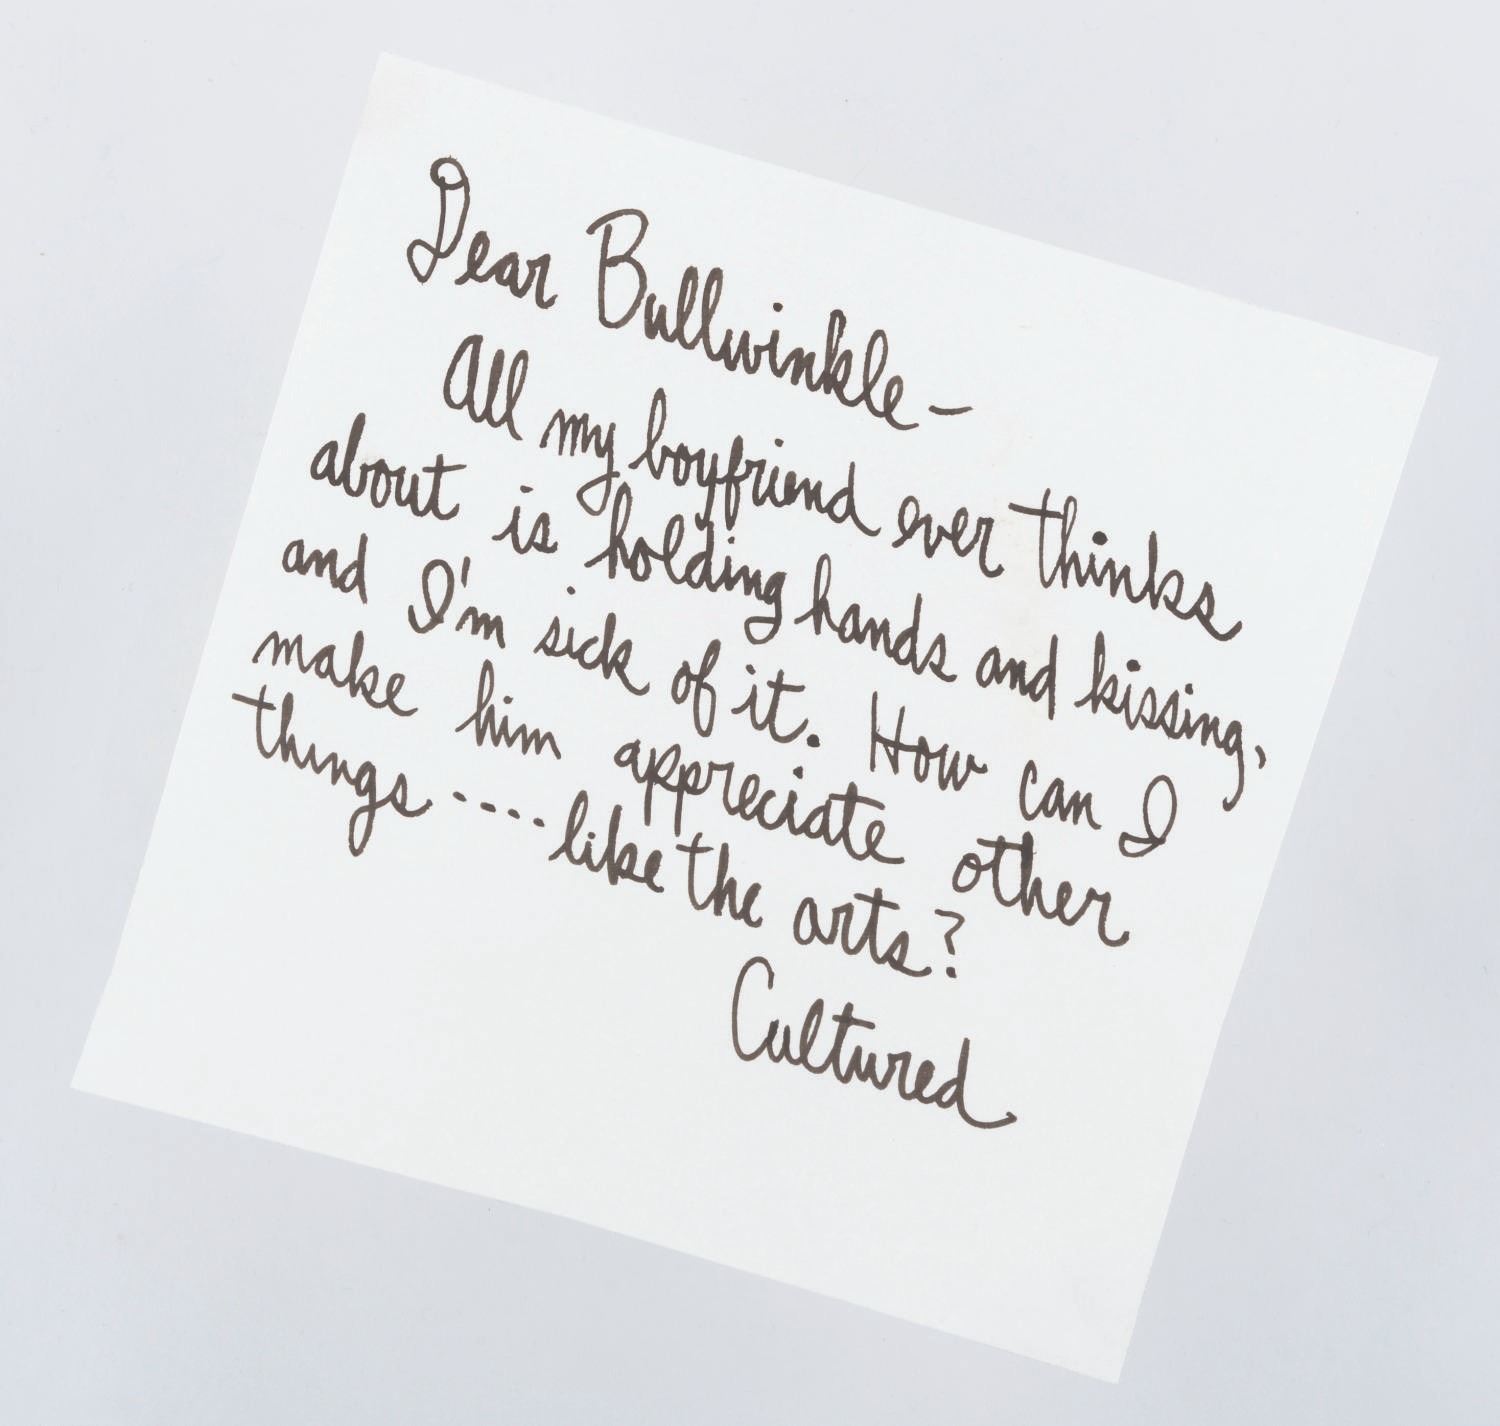 Dear Bullwinkle-
All my boyfriend ever thinks
about is holding hands and kissing,
and I'm sick of it. How can I
make him appreciate other
things....like the arts?
Cultured